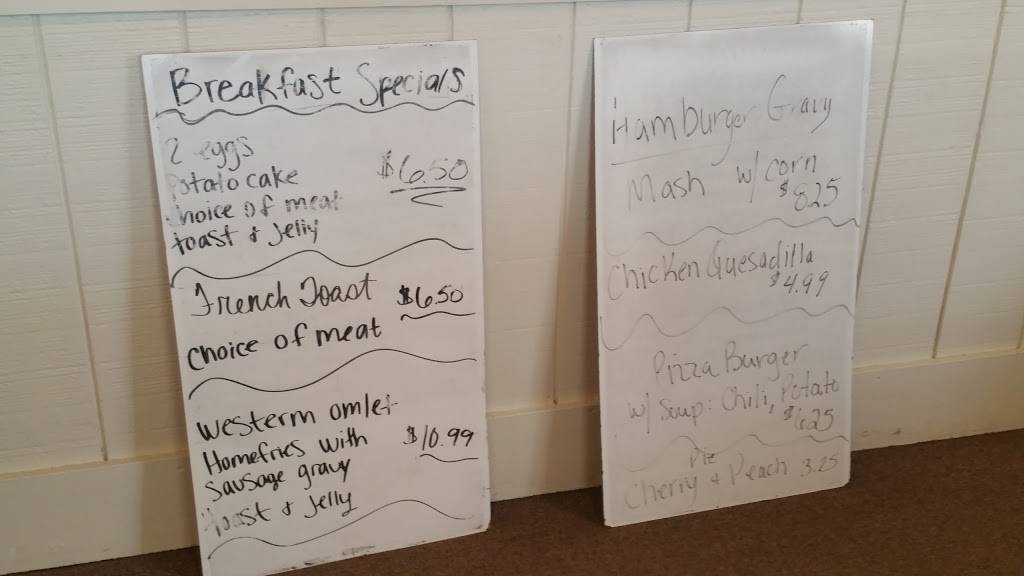 Breakfast Specials
2 eggs
Potato cake
$6.50
Choice of meat
toast & Jelly
French Toast
$6.50
Choice of meat
Westerm omlet
Homefries with
$10.99
Sausage gravy
toast & Jelly
Hamburger Gravy
Mash w/ corn
$8.25
Chicken Quesadilla
$4.99
Pizza Burger
w/ Soup: Chili, Potato
$6.25
Pie
Cherry & Peach 3.25